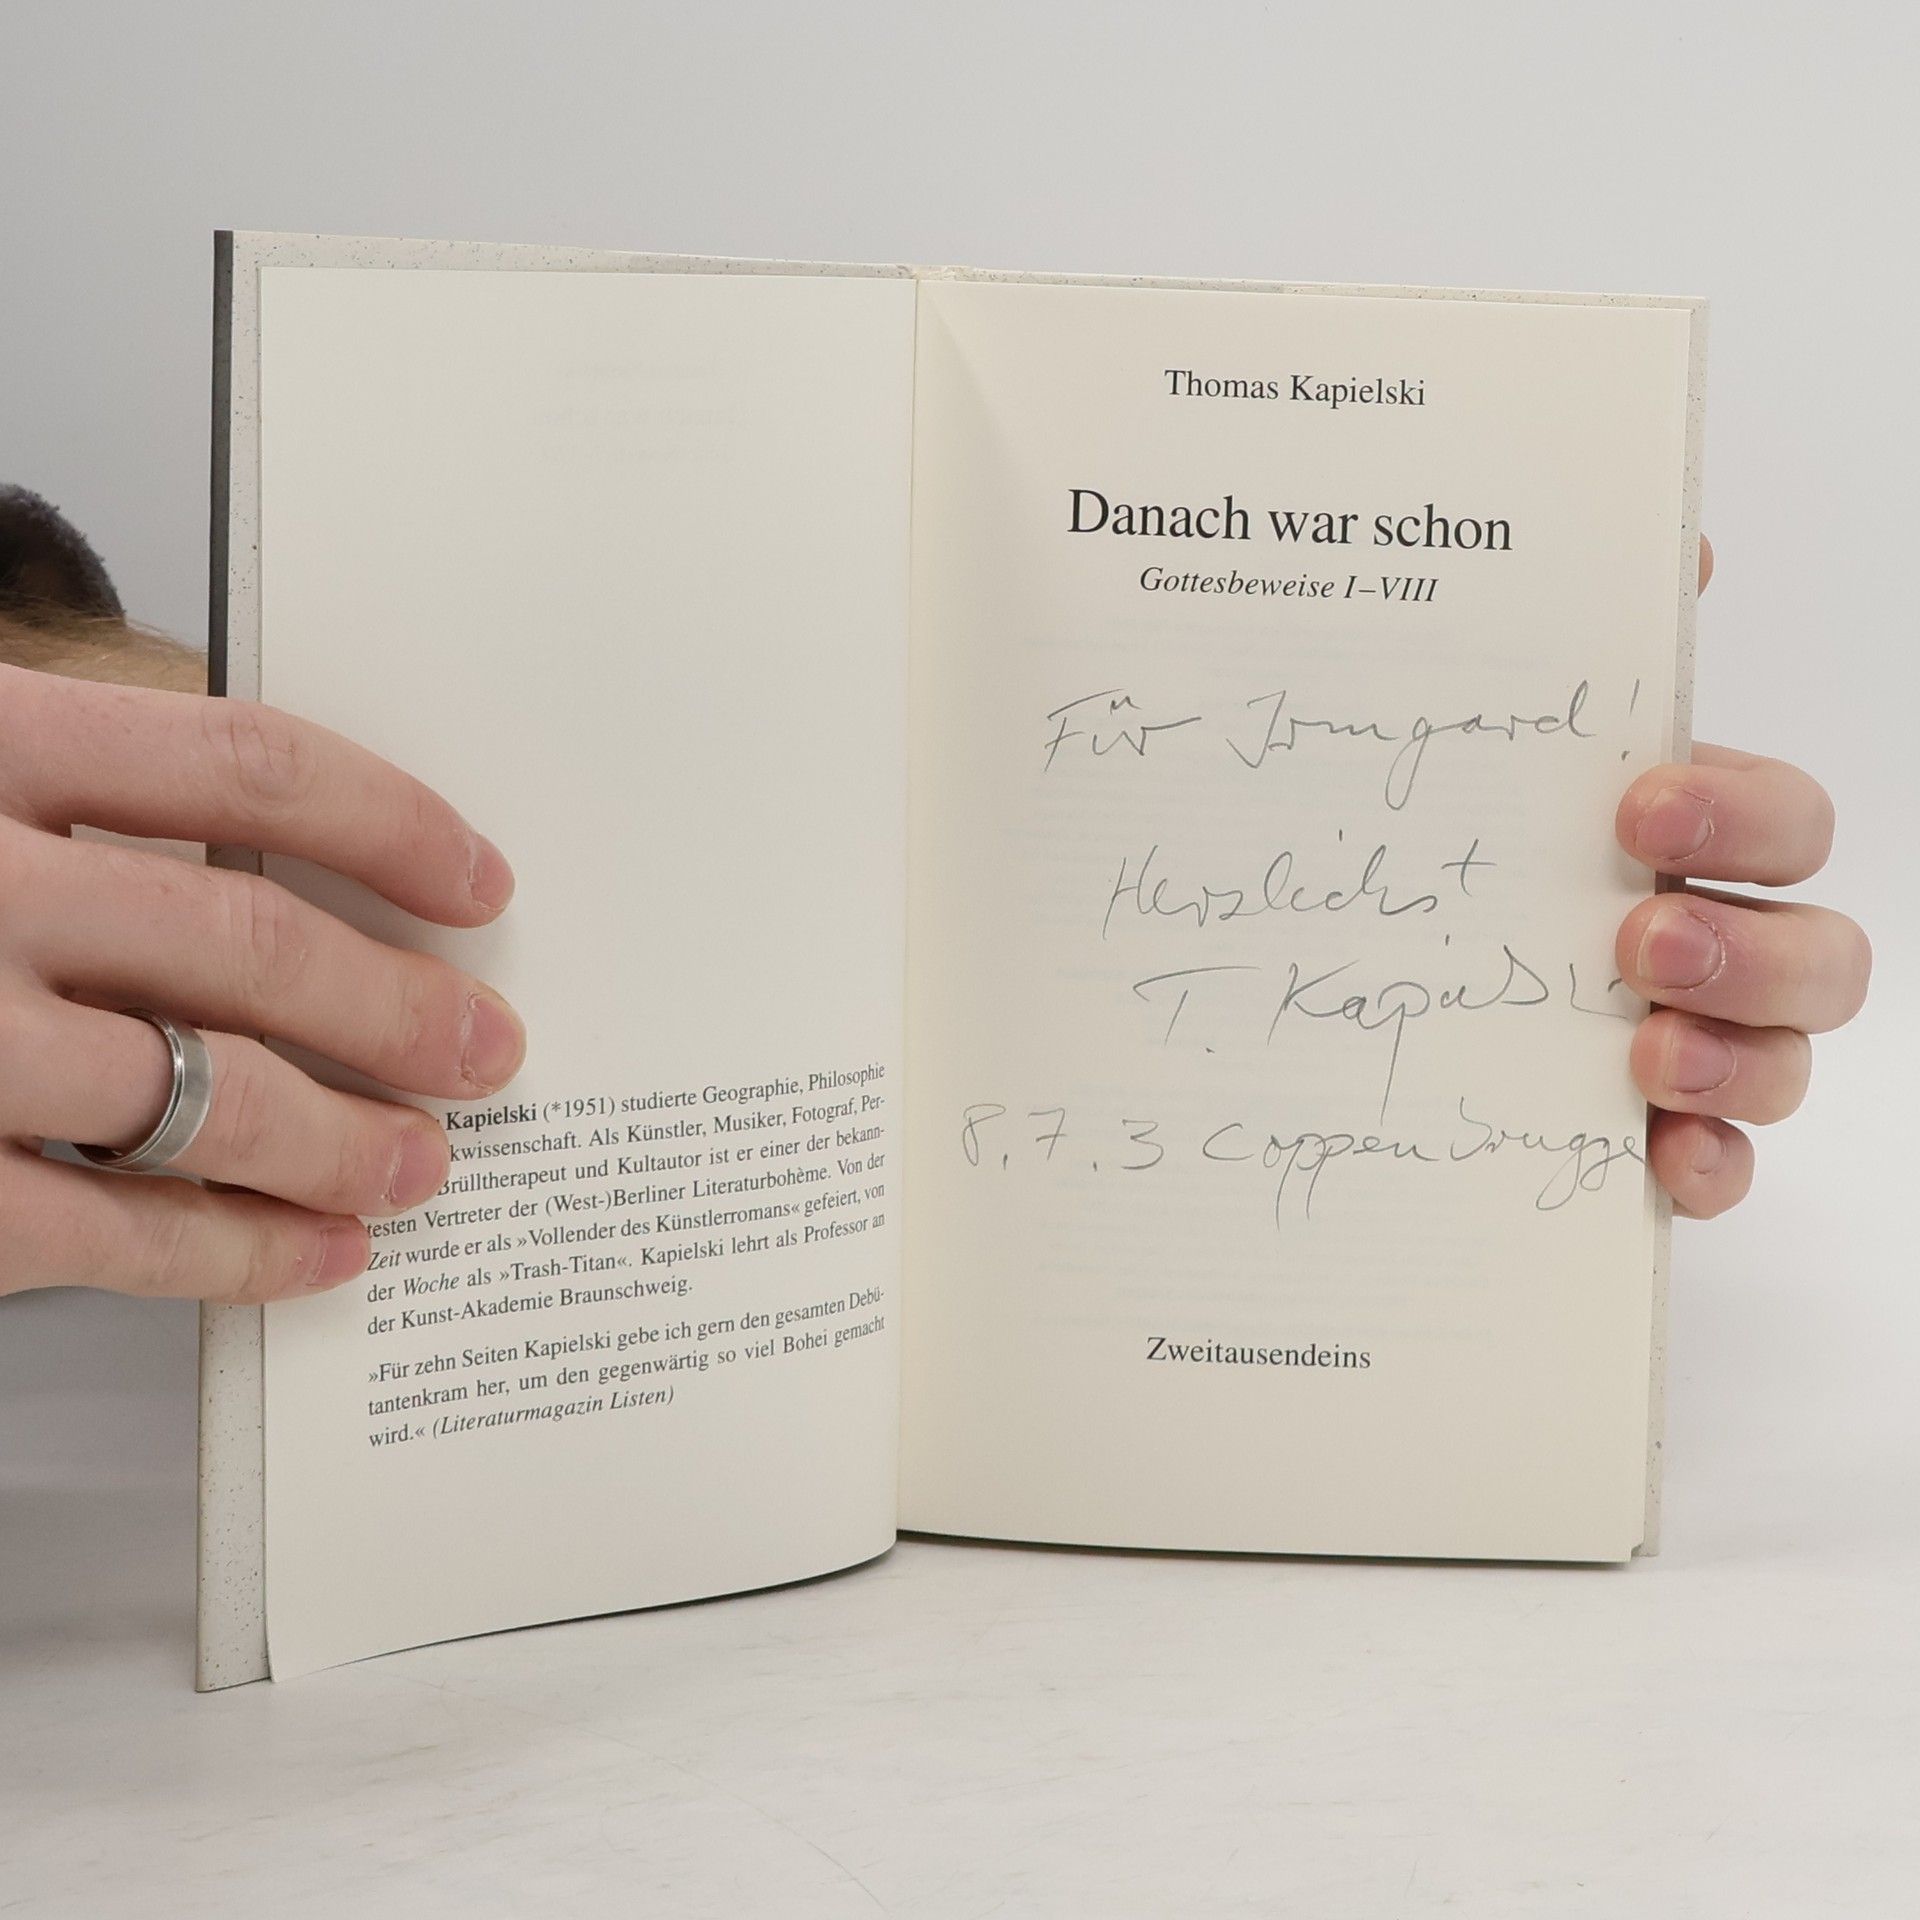 Kapielski (*1951) studierte Geographie, Philosophie
kwissenschaft. Als Künstler, Musiker, Fotograf, Per-
Brülltherapeut und Kultautor ist er einer der bekann-
testen Vertreter der (West-)Berliner Literaturbohème. Von der
Zeit wurde er als »Vollender des Künstlerromans« gefeiert, von
der Woche als »Trash-Titan«. Kapielski lehrt als Professor an
der Kunst-Akademie Braunschweig.
»Für zehn Seiten Kapielski gebe ich gern den gesamten Debü-
tantenkram her, um den gegenwärtig so viel Bohei gemacht
wird.« (Literaturmagazin Listen)
Thomas Kapielski
Danach war schon
Gottesbeweise I–VIII
Für Irmgard!
Herzlichst
T. Kapielski
8.7.3 Coppenbrügge
Zweitausendeins